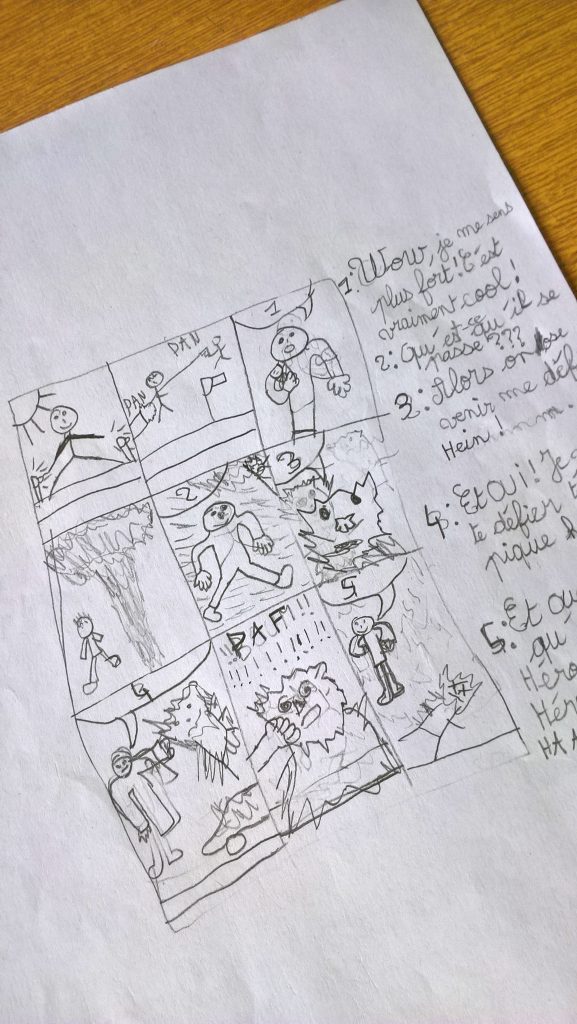 PAN
PAN
1
2
3
4
BAF!!!!!
5
1: Wow, je me sens
plus fort! C'est
vraiment cool!
2: Qu'est-ce qu'il se
passe???
3: Alors on ose
venir me déf
Hein! n.m.
4: Et oui! Je
te défier
pique
5: Et ou
qu
Héro
Hér
HA A